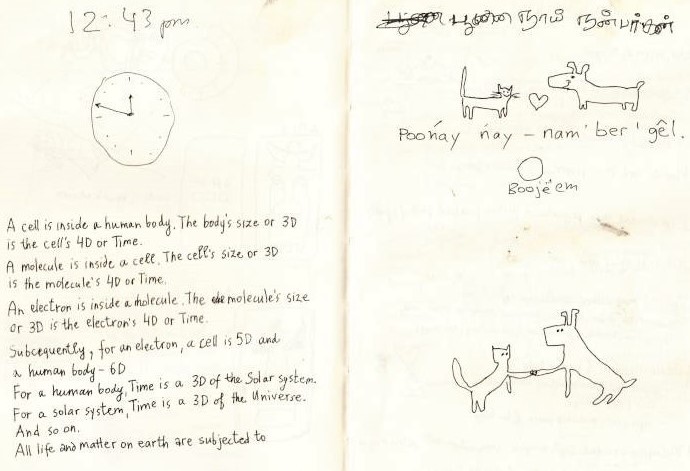 12:43 pm
A cell is inside a human body. The body's size or 3D
is the cell's 4D or Time.
A molecule is inside a cell. The cell's size or 3D
is the molecule's 4D or Time.
An electron is inside a molecule. The molecule's size
or 3D is the electron's 4D or Time.
Subcequently, for an electron, a cell is 5D and
a human body - 6D
For a human body, Time is a 3D of the Solar system.
For a solar system, Time is a 3D of the Universe.
And so on.
All life and matter on earth are subjected to
பூனை நாய் நண்பர்கள்
Poońay ńay - nam' ber' gêl.
Boojëem